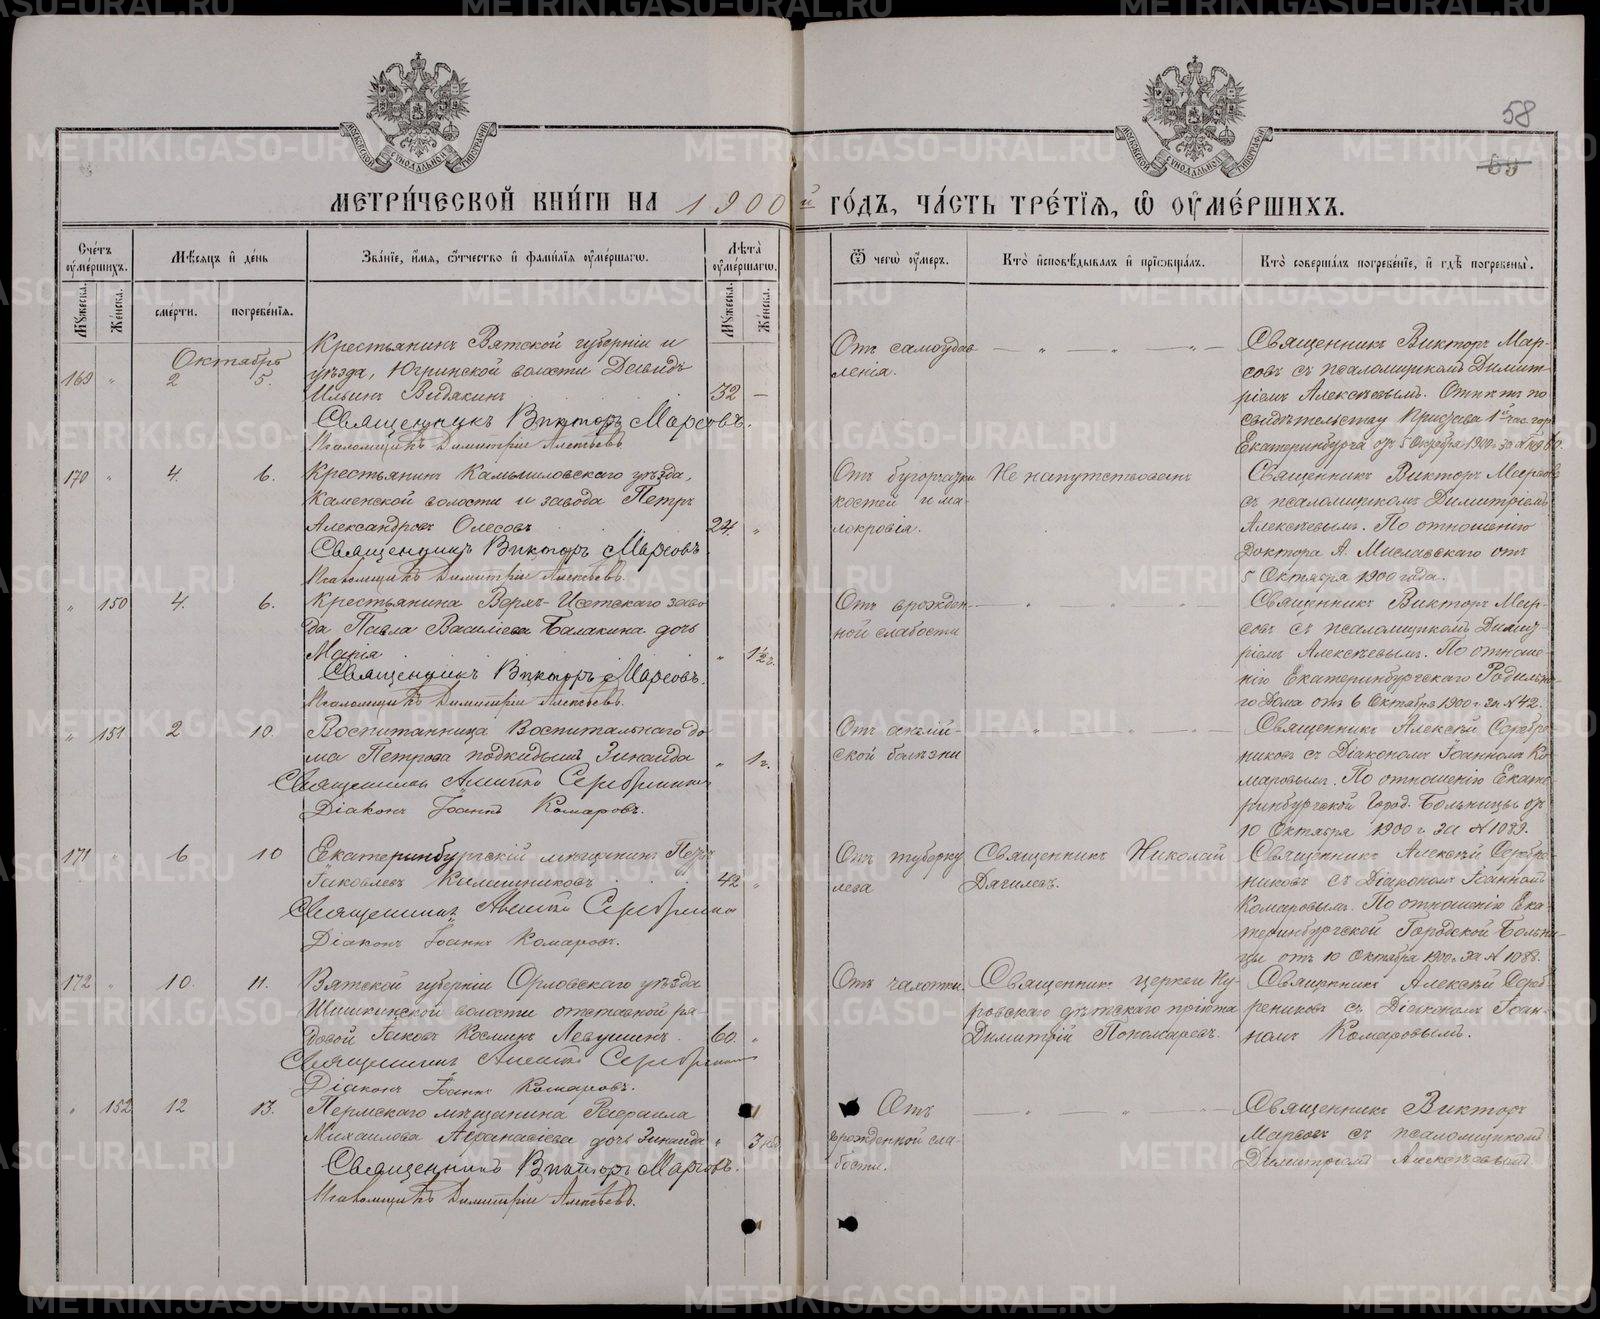 МЕТРИ́ЧЕСКОЙ КНИ́ГИ НА 1900й ГО́ДЪ, ЧА́СТЬ ТРЕ́ТІЯ, Ѡ ОУМЕ́РШИХЪ.
58
Сче́тъ оуме́ршихъ.
Мѣ́сяцъ и҆ де́нь
Зва́нїе, и҆́мя, о҆́тчество и҆ фами́лїя оуме́ршагѡ.
Лѣ́та оуме́ршагѡ.
Ѿ чегѡ̀ оу́меръ.
Кто̀ и҆сповѣ́дывалъ и҆ прїѡбща́лъ.
Кто̀ соверша́лъ погребе́нїе, и҆ гдѣ̀ погребены̀.
Му́жеска.
Же́нска.
сме́рти.
погребе́нїя.
Му́жеска.
Же́нска.
Октябрь
169 " 2 5.
Крестьянинъ Вятской губерніи и
уѣзда, Югринской волости Давидъ
Ильинъ Видякинъ 32 —
Священникъ Викторъ Марсовъ.
Псаломщикъ Димитрій Алексѣевъ
Отъ самоудав
ленія.
Священникъ Викторъ Мар-
совъ съ псаломщикомъ Димит-
ріемъ Алексѣевымъ. Отпѣтъ по
свидѣтельству Пристава 1й час. гор.
Екатеринбурга отъ 5 Октября 1900. за №
170 " 4. 6.
Крестьянинъ Камышловскаго уѣзда,
Каменской волости и завода Петръ
Александровъ Олесовъ 24. "
Священникъ Викторъ Марсовъ
Псаломщикъ Димитрій Алексѣевъ.
Отъ бугорчатки
костей и ма-
локровія.
Не напутствованъ
Священникъ Викторъ Марсовъ
съ псаломщикомъ Димитріемъ
Алексѣевымъ. По отношенію
доктора А. Миславскаго отъ
5 Октября 1900 года.
" 150 4. 6.
Крестьянина Верхъ-Исетскаго заво-
да Павла Васильева Балакина дочь
Марія " 1½ г.
Священникъ Викторъ Марсовъ.
Псаломщикъ Димитрій Алексѣевъ.
Отъ врожден-
ной слабости
Священникъ Викторъ Мар-
совъ съ псаломщикомъ Димит-
ріемъ Алексѣевымъ. По отноше-
нію Екатеринбургскаго Родильна-
го Дома отъ 6 Октября 1900 г. за № 42.
" 151 2 10.
Воспитанница Воспитальнаго до-
ма Петрова подкидышъ Зинаида " 1 г.
Священникъ Алексѣй Серебрениковъ
Діаконъ Іоаннъ Комаровъ.
Отъ англій-
ской болѣзни
Священникъ Алексѣй Серебре-
никовъ съ Діакономъ Іоанномъ Ко-
маровымъ. По отношенію Екате-
ринбургской Город. Больницы отъ
10 Октября 1900 г. за № 1089.
171 " 6 10
Екатеринбургскій мѣщанинъ Петръ
Іаковлевъ Калашниковъ 42 "
Священникъ Алексѣй Серебрениковъ
Діаконъ Іоаннъ Комаровъ.
Отъ туберку
леза
Священникъ Николай
Дягилевъ.
Священникъ Алексѣй Серебре-
никовъ съ Діакономъ Іоанномъ
Комаровымъ. По отношенію Ека-
теринбургской Городской Больни-
цы отъ 10 Октября 1900 г. за № 1088.
172 " 10. 11.
Вятской губерніи Орловскаго уѣзда
Шишкинской волости отставной ря-
довой Іаковъ Косминъ Левушинъ 60. "
Священникъ Алексѣй Серебрениковъ
Діаконъ Іоаннъ Комаровъ.
Отъ чахотки.
Священникъ церкви Ну-
ровскаго дѣтскаго пріюта
Димитрій Пономаревъ.
Священникъ Алексѣй Сереб-
рениковъ съ Діакономъ Іоан-
номъ Комаровымъ.
" 152 12 13.
Пермскаго мѣщанина Рафаила
Михаилова Афанасіева дочь Зинаида " 3 нед.
Священникъ Викторъ Марсовъ.
Псаломщикъ Димитрій Алексѣевъ.
Отъ
врожденной сла-
бости.
Священникъ Викторъ
Марсовъ съ псаломщикомъ
Димитріемъ Алексѣевымъ
METRIKI.GASO-URAL.RU